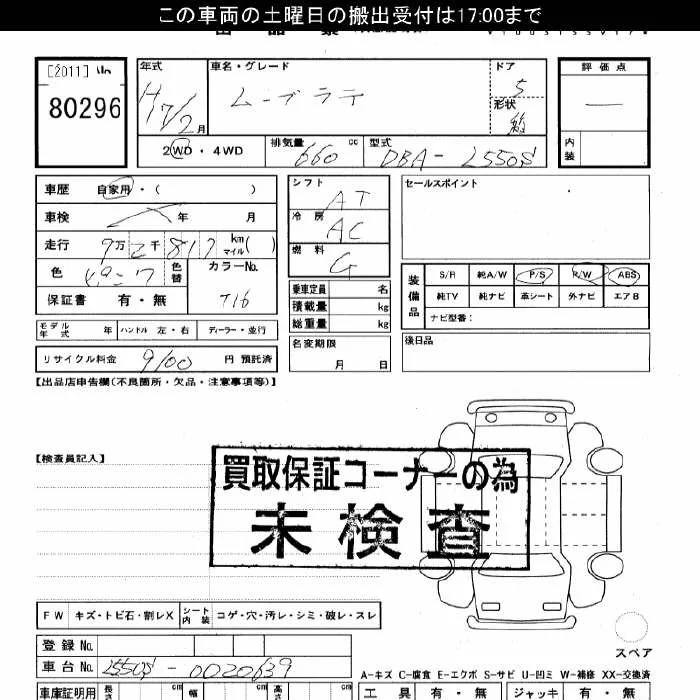 この車両の土曜日の搬出受付は17:00まで
[2011]
80296
年式 H17/2月
車名・グレード ムーブラテ
ドア 5
形状 箱
評価点 —
2WD・4WD
排気量 660 cc
型式 DBA-L550S
内装
車歴 自家用・( )
車検 年 月
走行 9万2千817 km マイル( )
色 色替
カラーNo. T16
保証書 有・無
シフト AT
冷房 AC
燃料 G
乗車定員 名
積載量 kg
総重量 kg
名変期限 月 日
セールスポイント
装備品
S/R 純A/W P/S R/W ABS
純TV 純ナビ 革シート 外ナビ エアB
ナビ型番：
後日品
モデル年式 年 ハンドル 左・右 ディーラー・並行
リサイクル料金 9100 円 預託済
【出品店申告欄(不良箇所・欠品・注意事項等)】
【検査員記入】
買取保証コーナーの為
未検査
FW キズ・トビ石・割レX シート内装 コゲ・穴・汚レ・シミ・破レ・スレ
スペア
登録No.
車台No. L550S-0020639
A-キズ C-腐食 E-エクボ S-サビ U-凹ミ W-補修 XX-交換済
車庫証明用 長さ cm 幅 cm 高さ cm
工具 有・無 ジャッキ 有・無